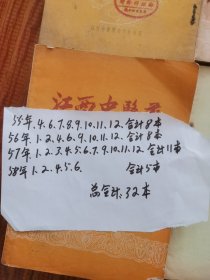 江西中医药
55年.4.6.7.8.9.10.11.12.合计8本
56年.1.2.4.6.9.10.11.12.合计8本
57年.1.2.3.4.5.6.7.9.10.11.12.合计11本
58年.1.2.4.5.6. 合计5本
总合计:32本